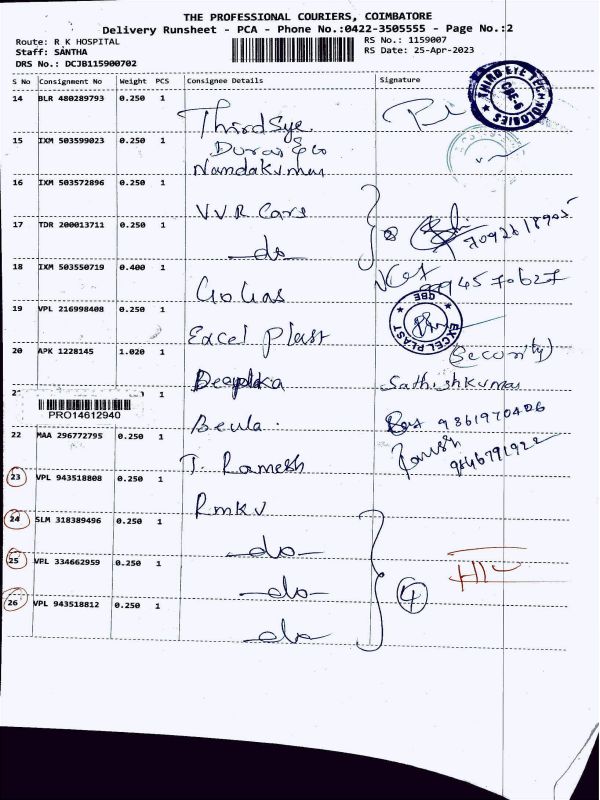 THE PROFESSIONAL COURIERS, COIMBATORE
Delivery Runsheet - PCA - Phone No.:0422-3505555 - Page No.:2
Route: R K HOSPITAL RS No.: 1159007
Staff: SANTHA RS Date: 25-Apr-2023
DRS No.: DCJB115900702
S No Consignment No Weight PCS Consignee Details Signature
14 BLR 480289793 0.250 1 ThirdEye
THIRD EYE TECHNOLOGIES CBE-6
15 IXM 503599023 0.250 1 Durai & Co
Nandakumar
16 IXM 503572896 0.250 1 VVR Cars
17 TDR 200013711 0.250 1 do
18 IXM 503550719 0.400 1 GoGas
19 VPL 216998408 0.250 1 Excel Plast
EXCEL PLAST CBE
(Security)
20 APK 1228145 1.020 1 Deepika Sathishkumar
PRO14612940 1 Beula 9861970406
22 MAA 296772795 0.250 1 T. Ramesh
23 VPL 943518808 0.250 1 RmKV
24 SLM 318389496 0.250 1 do
25 VPL 334662959 0.250 1 do
26 VPL 943518812 0.250 1 do
4